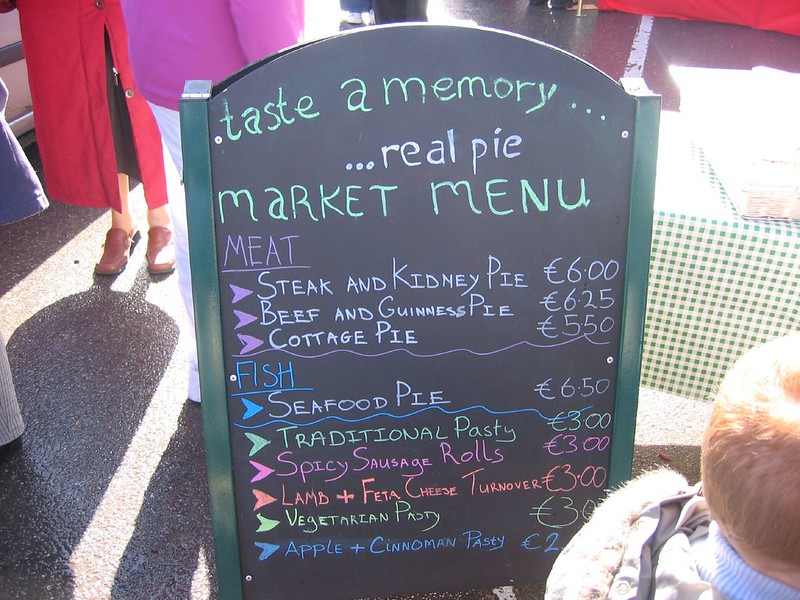 taste a memory...
...real pie
MARKET MENU
MEAT
STEAK AND KIDNEY PIE €6.00
BEEF AND GUINNESS PIE €6.25
COTTAGE PIE €5.50
FISH
SEAFOOD PIE €6.50
TRADITIONAL PASTY €3.00
SPICY SAUSAGE ROLLS €3.00
LAMB + FETA CHEESE TURNOVER €3.00
VEGETARIAN PASTY
APPLE + CINNOMAN PASTY